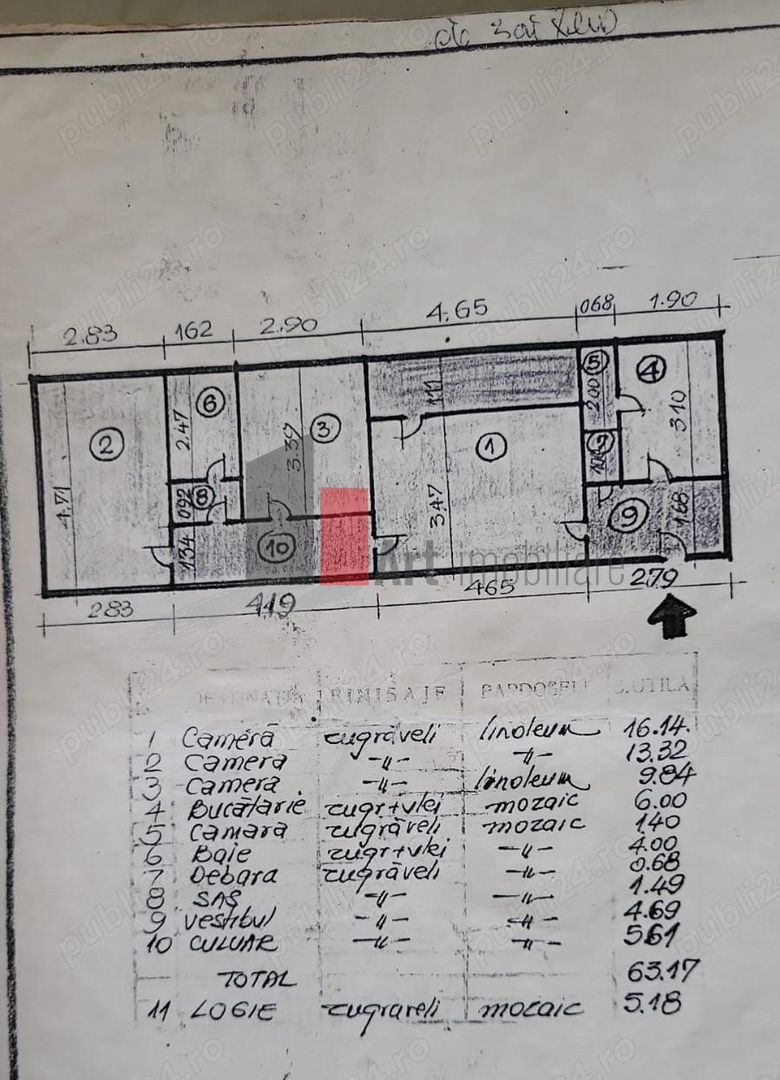 2.83 162 2.90 4.65 068 1.90
2 4.71
6 2.47
8 092
1.34
3 3.39
10
1 3.47
1.11
5 2.00
4 3.10
9 1.68
283 419 465 279
Art imobiliare
DESTINATIA FINISAJE PARDOSELI S.UTILA
1 Cameră zugrăveli linoleum 16.14
2 Camera -〃- -〃- 13.32
3 Camera -〃- linoleum 9.84
4 Bucătarie zugr+vlei mozaic 6.00
5 Camara zugrăveli mozaic 1.40
6 Baie zugr+vlei -〃- 4.00
7 Debara zugrăveli -〃- 0.68
8 SAS -〃- -〃- 1.49
9 vestibul -〃- -〃- 4.69
10 CULUAR -〃- -〃- 5.61
TOTAL 63.17
11 LOGIE zugraveli mozaic 5.18
publi24.ro